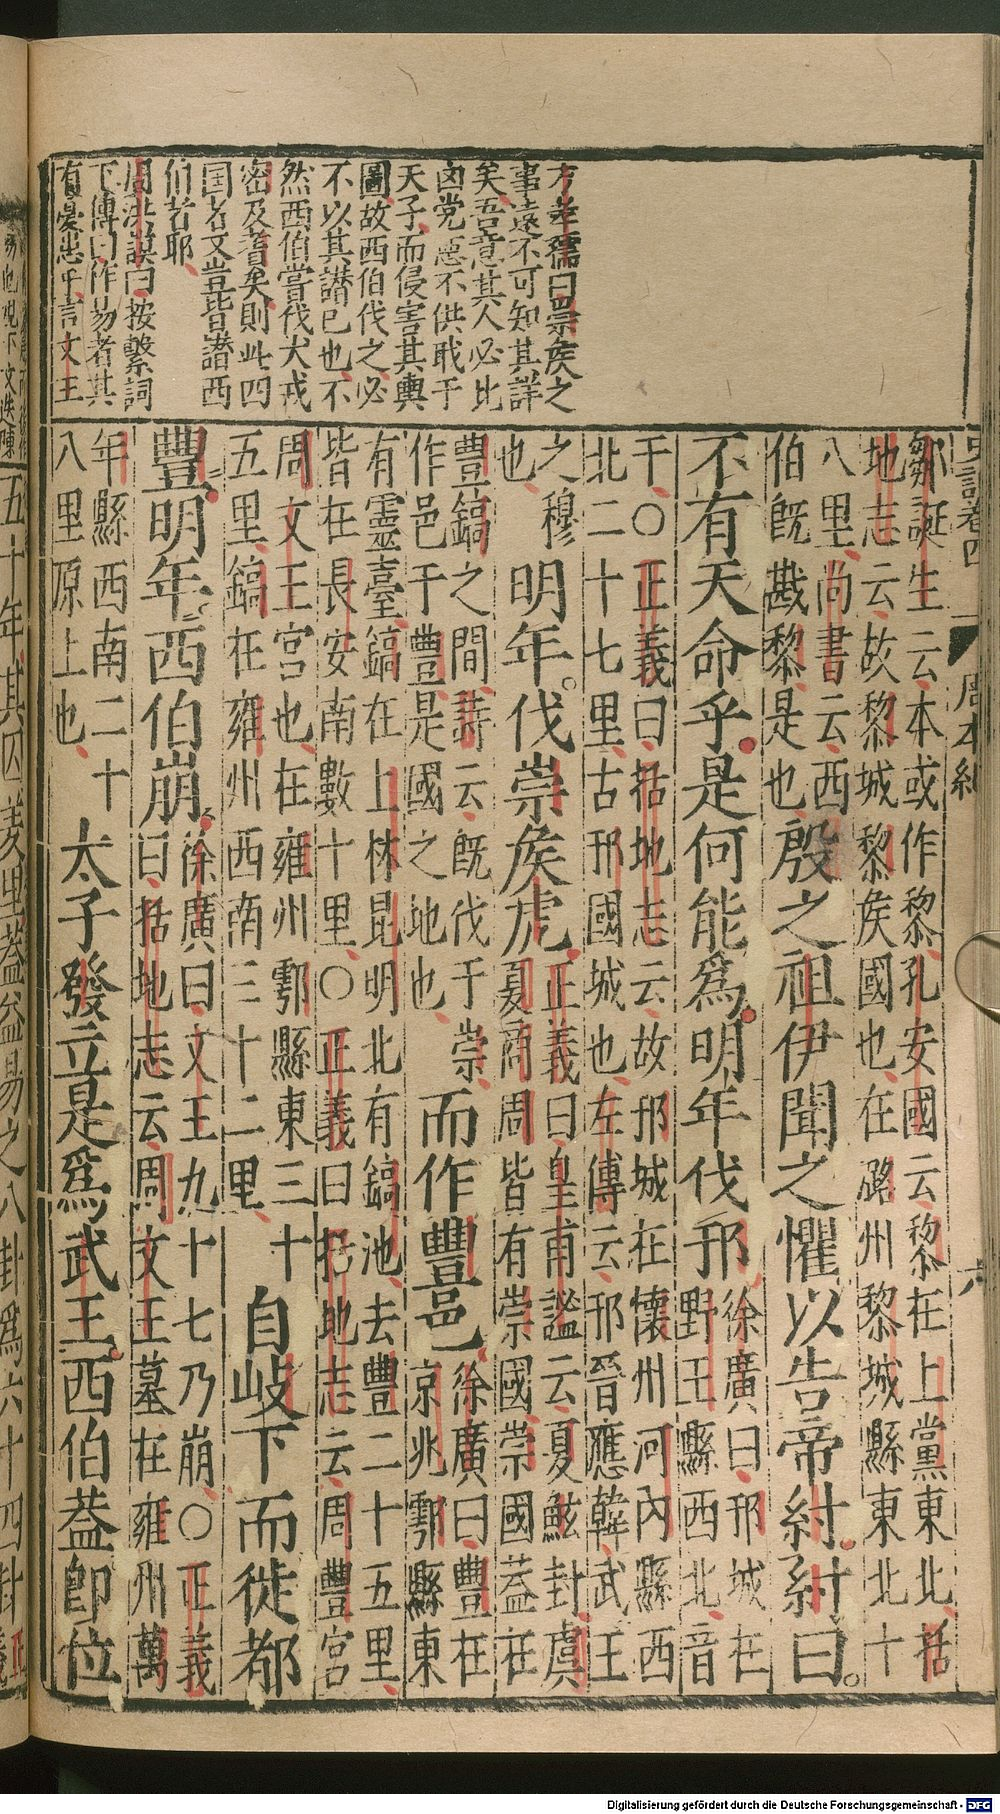 史記卷四 周本紀 六
方孝孺曰崇侯之
事遠不可知其詳
矣吾意其人必比
凶党惡不供职于
天子而侵害其輿
圖故西伯伐之必
不以其譖已也不
然西伯嘗伐犬戎
密及耆矣則此四
国者文豈皆譖西
伯者耶
周洪謨曰按繫詞
下傳曰作易者其
有憂患乎言文王
鄒誕生云本或作黎孔安國云黎在上黨東北括
地志云故黎城黎侯國也在潞州黎城縣東北十
八里尚書云西
伯旣戡黎是也
殷之祖伊聞之懼以告帝紂紂曰
不有天命乎是何能爲明年伐邘
徐廣曰邘城在
野王縣西北音
于○正義曰括地志云故邘城在懷州河內縣西
北二十七里古邘國城也左傳云邘晉應韓武王
之穆
也
明年伐崇侯虎
正義曰皇甫謐云夏鮌封虞
夏商周皆有崇國崇國蓋在
豐鎬之間詩云旣伐于崇
作邑于豐是國之地也
而作豐邑
徐廣曰豐在
京兆鄠縣東
有靈臺鎬在上林昆明北有鎬池去豐二十五里
皆在長安南數十里○正義曰括地志云周豐宮
周文王宮也在雍州鄠縣東三十
五里鎬在雍州西南三十二里
自岐下而徙都
豐明年西伯崩
徐廣曰文王九十七乃崩○正義
曰括地志云周文王墓在雍州萬
年縣西南二十
八里原上也
太子發立是爲武王西伯蓋卽位
五十年其囚羑里蓋益易之八卦爲六十四卦
Digitalisierung gefördert durch die Deutsche Forschungsgemeinschaft - DFG